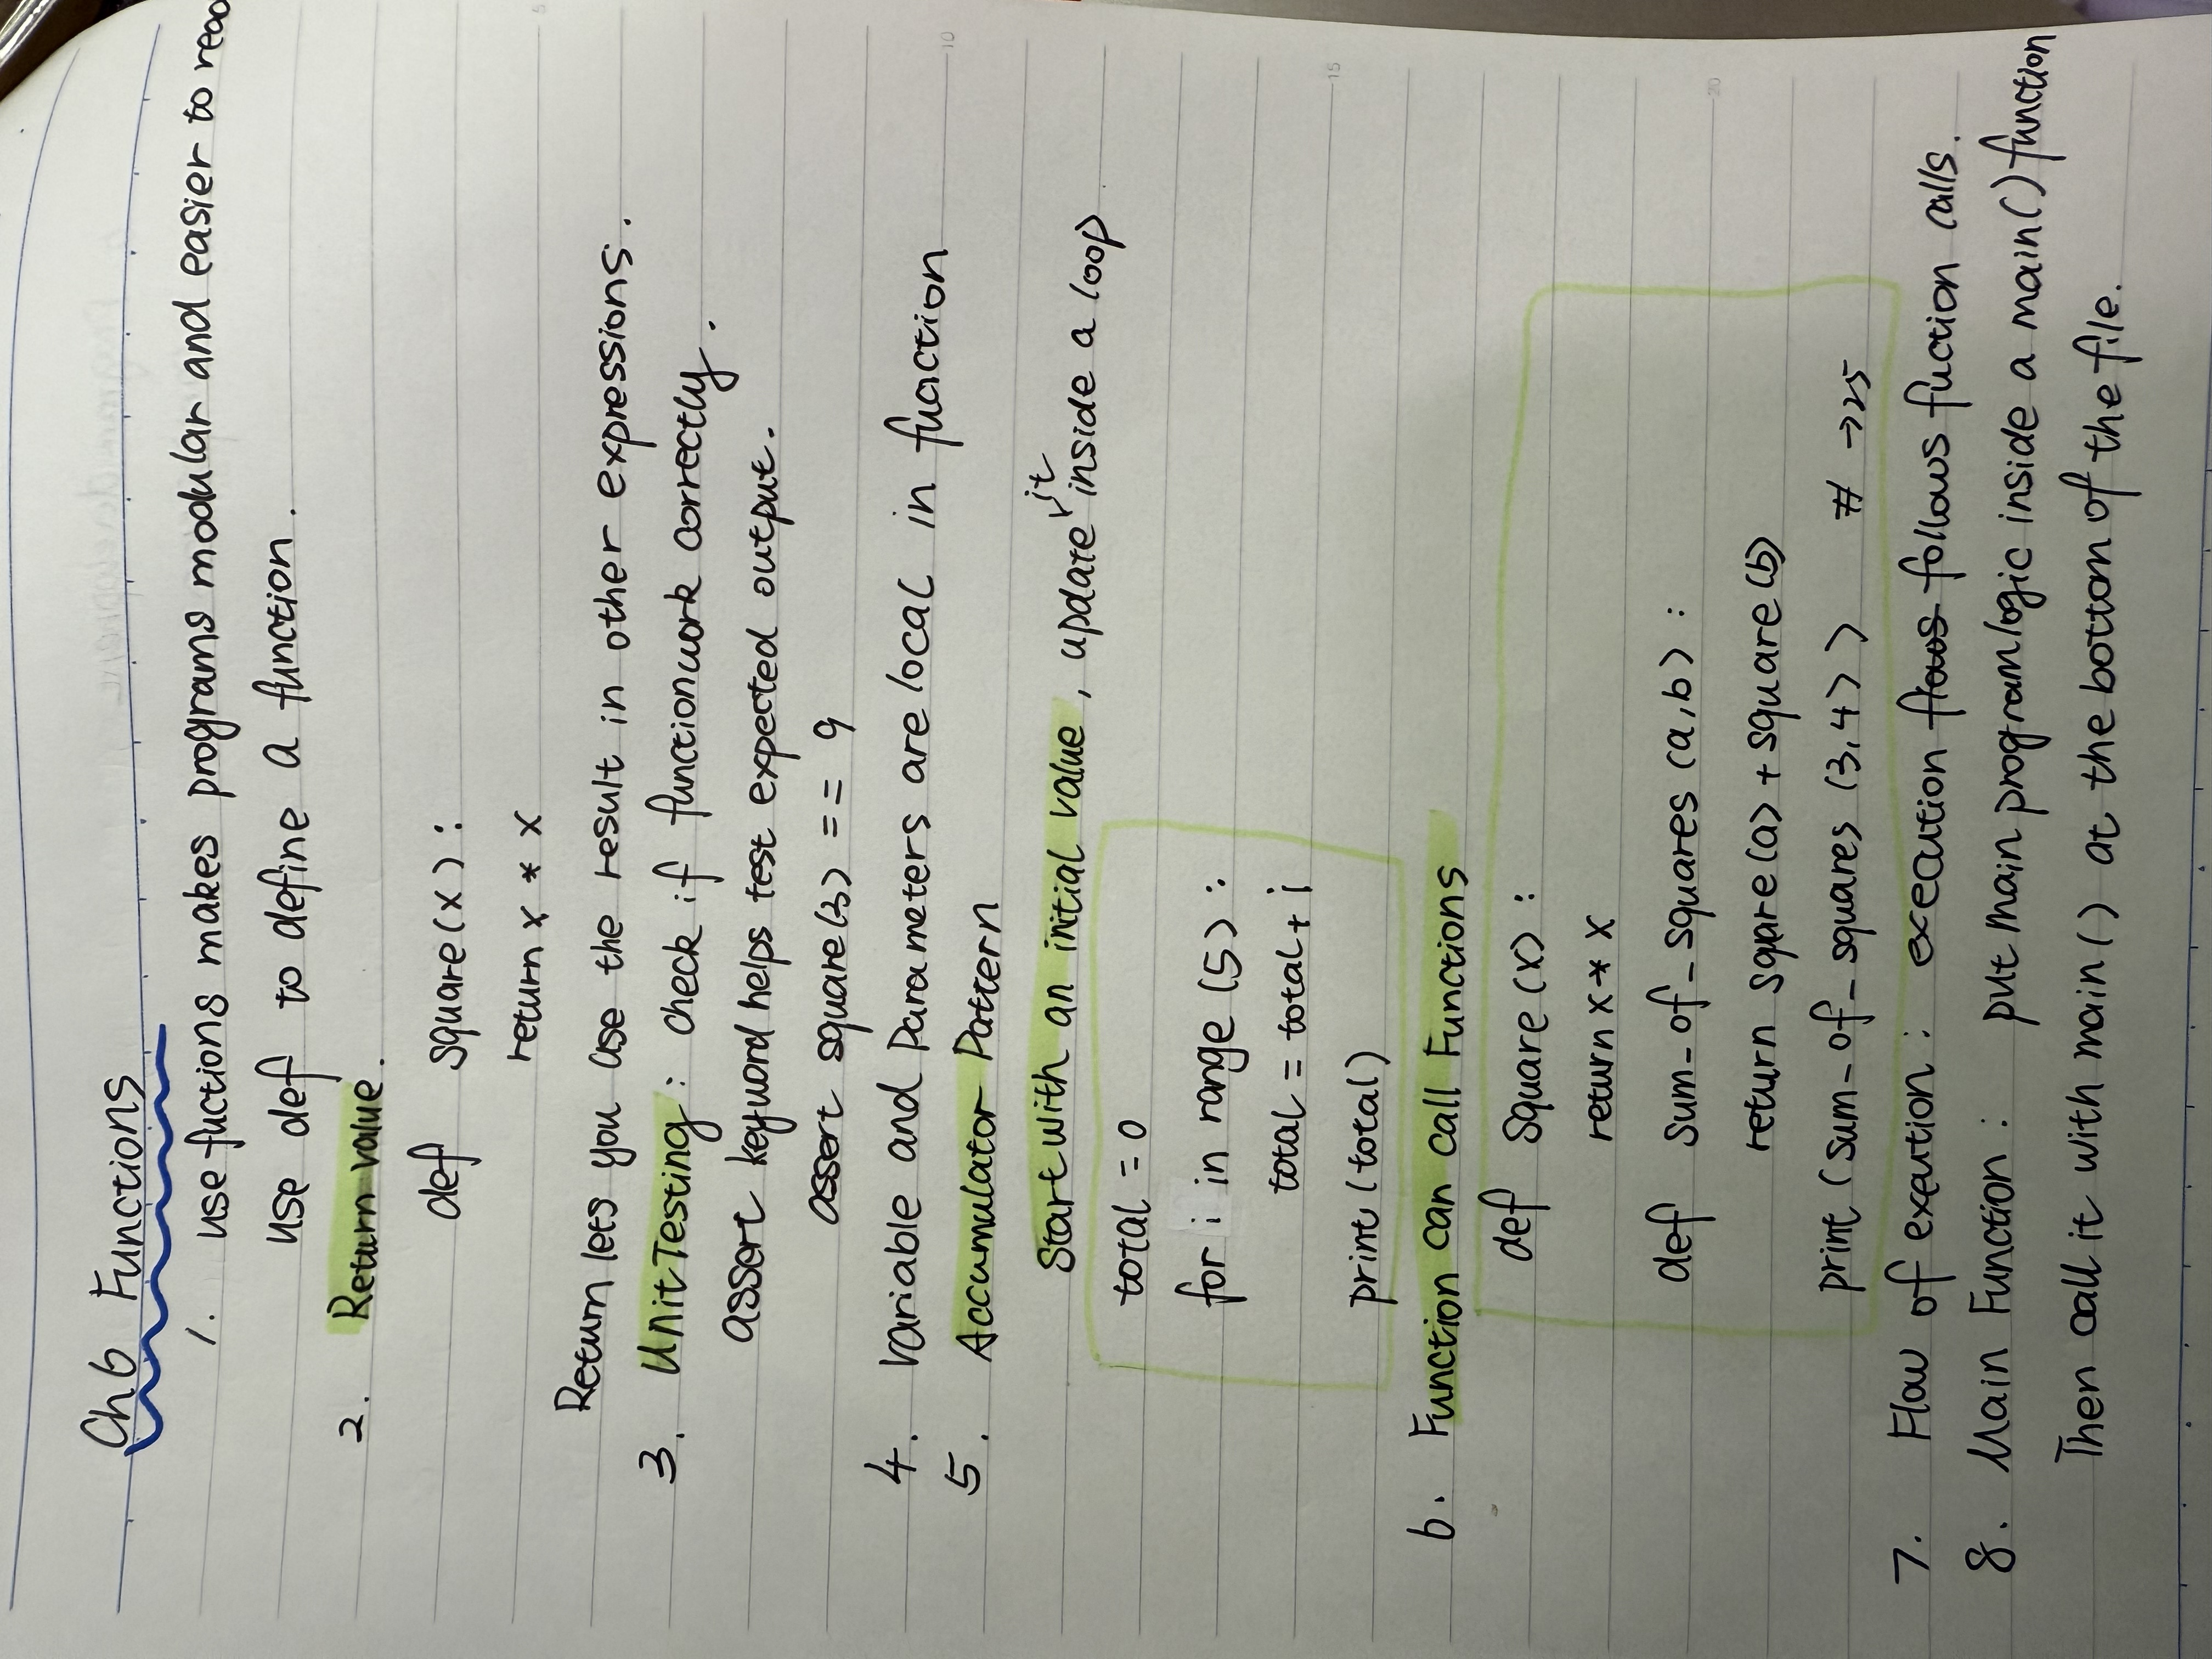 Ch 6 Functions
1. use fuctions makes programs modular and easier to read
use def to define a function.
2. Return value.
def square(x):
return x * x
Return lets you use the result in other expressions.
3. Unit Testing: check if function work correctly.
assert keyword helps test expected output.
assert square(3) == 9
4. Variable and Parameters are local in function
5. Accumulator Pattern
Start with an initial value, update it inside a loop
total = 0
for i in range (5):
total = total + i
print (total)
6. Function can call Functions
def square (x):
return x * x
def sum_of_squares (a,b):
return sqare(a) + square (b)
print (sum_of_squares (3,4)) # →25
7. Flow of exeution: execution flows follows fuction calls.
8. Main Function: put main program logic inside a main() function
Then call it with main() at the bottom of the file.
5
10
15
20